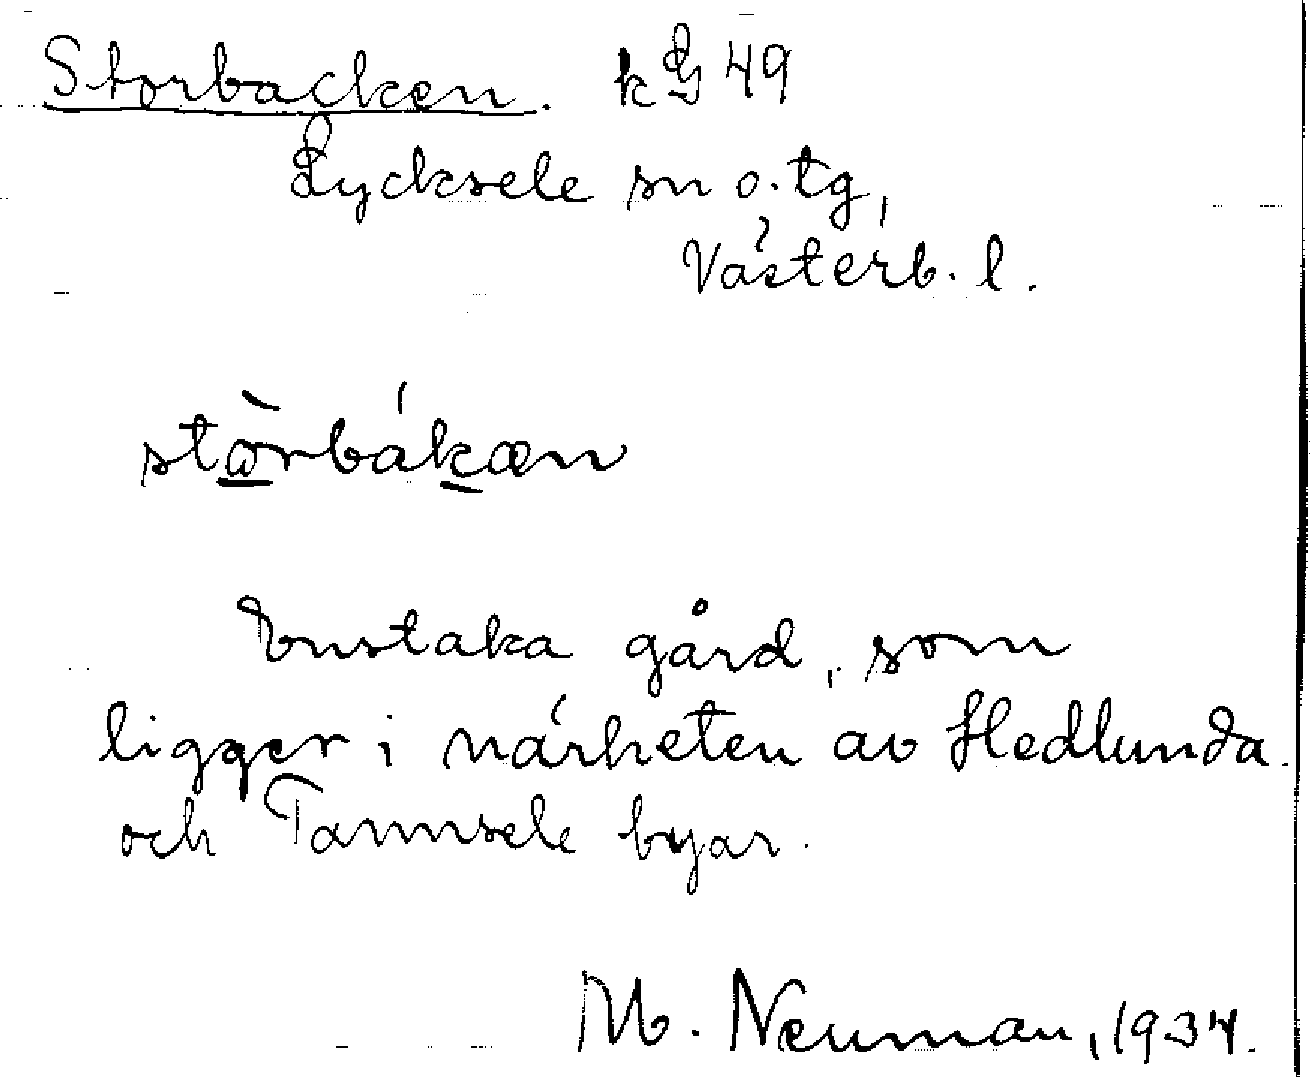 Storbacken. k G 49
Lycksele sn o. tg,
Västerb. l.
stòrbákæn
Enstaka gård, som
ligger i närheten av Hedlunda
och Tannsele byar.
M. Neuman, 1934.